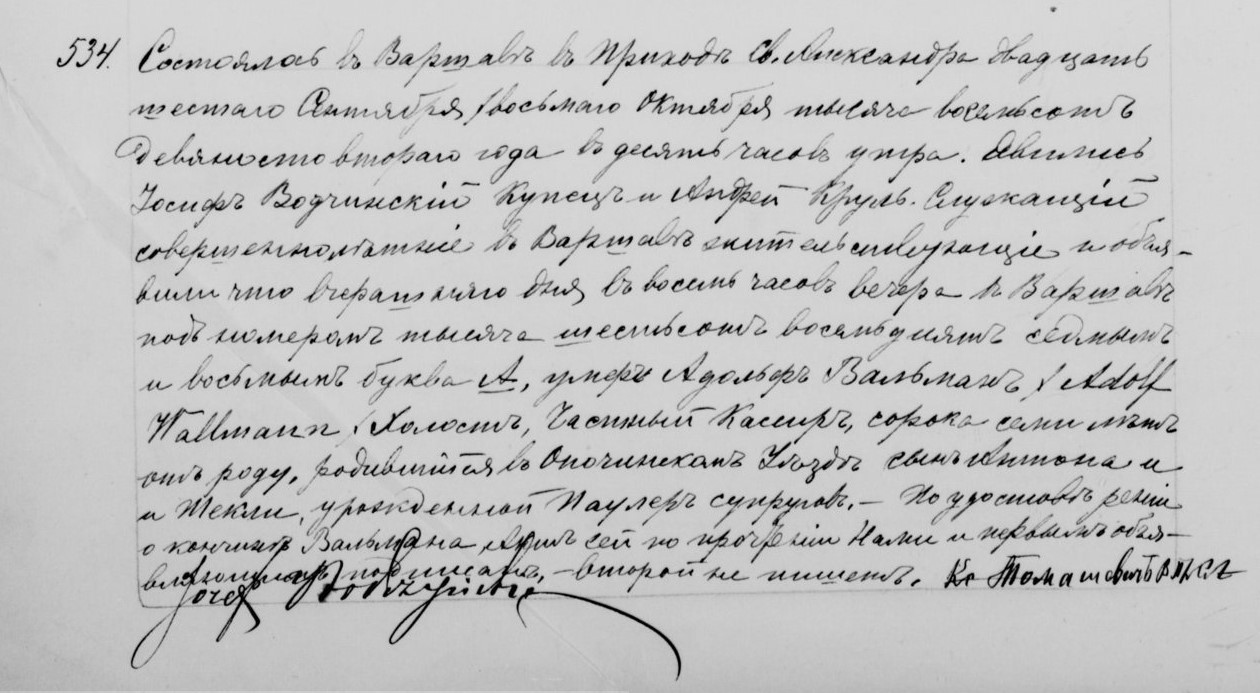 534. Состоялось въ Варшавѣ въ Приходѣ Св. Александра двадцать
шестаго Сентября /восьмаго Октября тысяча восемьсотъ
девяносто втораго года въ десять часовъ утра. Явились
Іосифъ Водчинскій Купецъ и Андрей Круль. Служащій
совершеннолѣтніе въ Варшавѣ жительствующіе и объя-
вили что вчерашняго дня въ восемь часовъ вечера въ Варшавѣ
подъ номеромъ тысяча шестьсотъ восемьдесятъ седмымъ
и восьмымъ буква А, умеръ Адольфъ Вальманъ / Adolf
Wallmann / Холостъ, Частный Кассиръ, сорока семи лѣтъ
отъ роду, родившійся въ Опочинскомъ Уѣздѣ сынъ Антона и
и Текли, урожденной Паулеръ супруговъ. — По удостовѣреніи
о кончинѣ Вальмана Актъ сей по прочтеніи Нами и первымъ объя-
вляющимъ подписанъ, — второй не пишетъ. Кс Томашевичъ
Józef Wodczyński